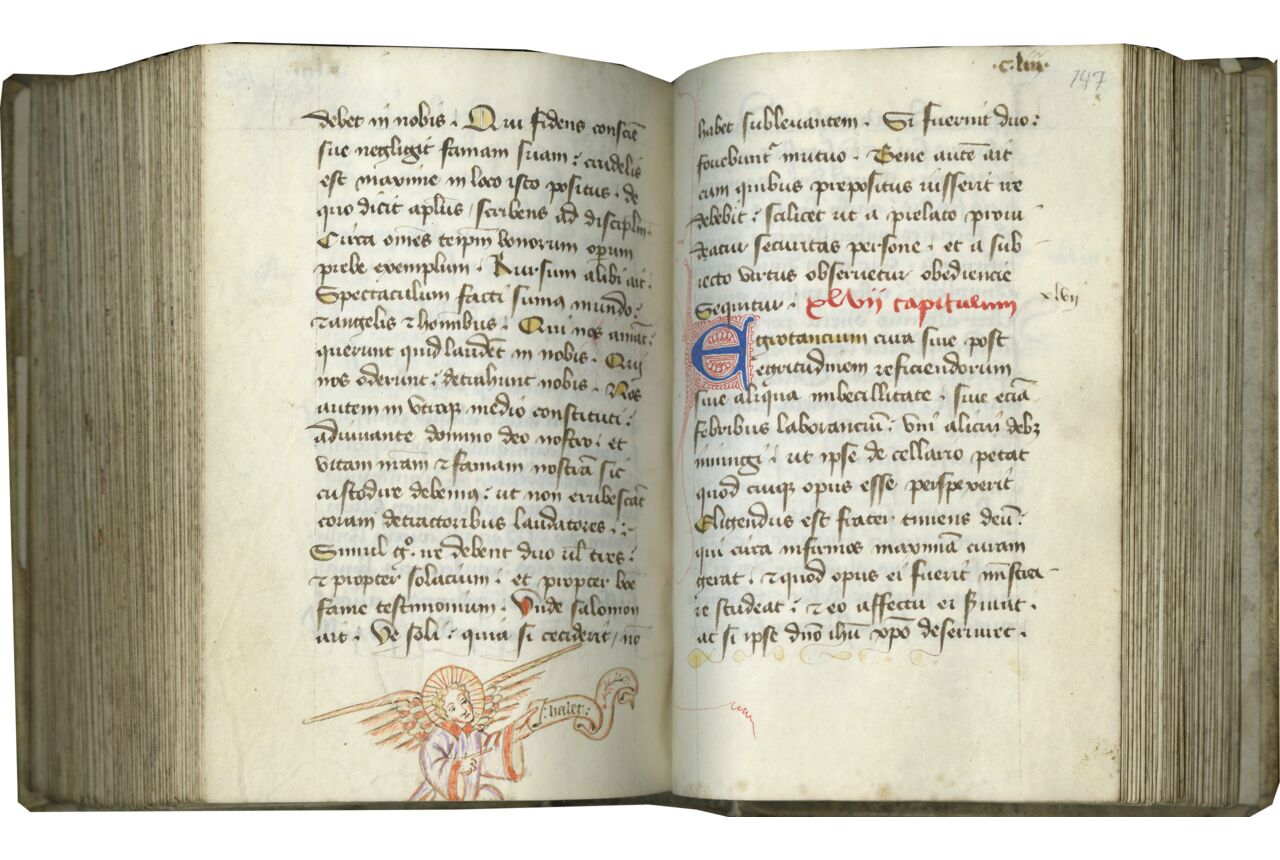 debet in nobis . Qui fidens conscie͞
sue negligit famam suam : crudelis
est maxime in loco isto positus . de
quo dicit aplus / scribens ad discipulu͞ .
Circa om͞es teip͞m bonorum operum
prebe exemplum . Rursum alibi ait .
Spectaculum facti sumus mundo :
⁊ angelis ⁊ hominibus . Qui nos ama͞t :
querunt quid laude͞t in nobis . Qui
nos oderunt : detrahunt nobis . Nos
autem in utroqꝫ medio constituti :
adiuuante domino deo nostro : et
vitam n͞ram ⁊ famam nostram sic
custodire debemus : ut non erubesca͞t
coram detractoribus laudatores . :
Simul g͛o . ire debent duo u͞l tres :
⁊ propter solacium : et propter bo͞e
fame testimonium . Unde salomon
ait . Ve soli : quia si ceciderit / no͞
: habet :
· C · liii ·
147
habet subleuantem . Si fuerint duo :
fouebunt͛ mutuo . Bene aute͞ ait
cum quibus prepositus iusserit ire
debebit : scilicet ut a prelato proui
deatur securitas persone . et a sub
iecto virtus obseruetur obediencie
Sequitur . xlvii capitulum
xlvii
Egrotancium cura siue post
egritudinem reficiendorum
siue aliqua imbecillitate . siue ecia͞
febribus laboranciu͞ : vni alicui debꝫ
iniungi . ut ipse de cellario petat
quod cuiqꝫ opus esse perspexerit
Eligendus est frater timens deu͞ :
qui circa infirmos maximam curam
gerat . ⁊ quod opus ei fuerit minist͛a
re studeat : ⁊ eo affectu ei seruiat .
ac si ipse d͞no ih͞u xp͞o deseruiret .